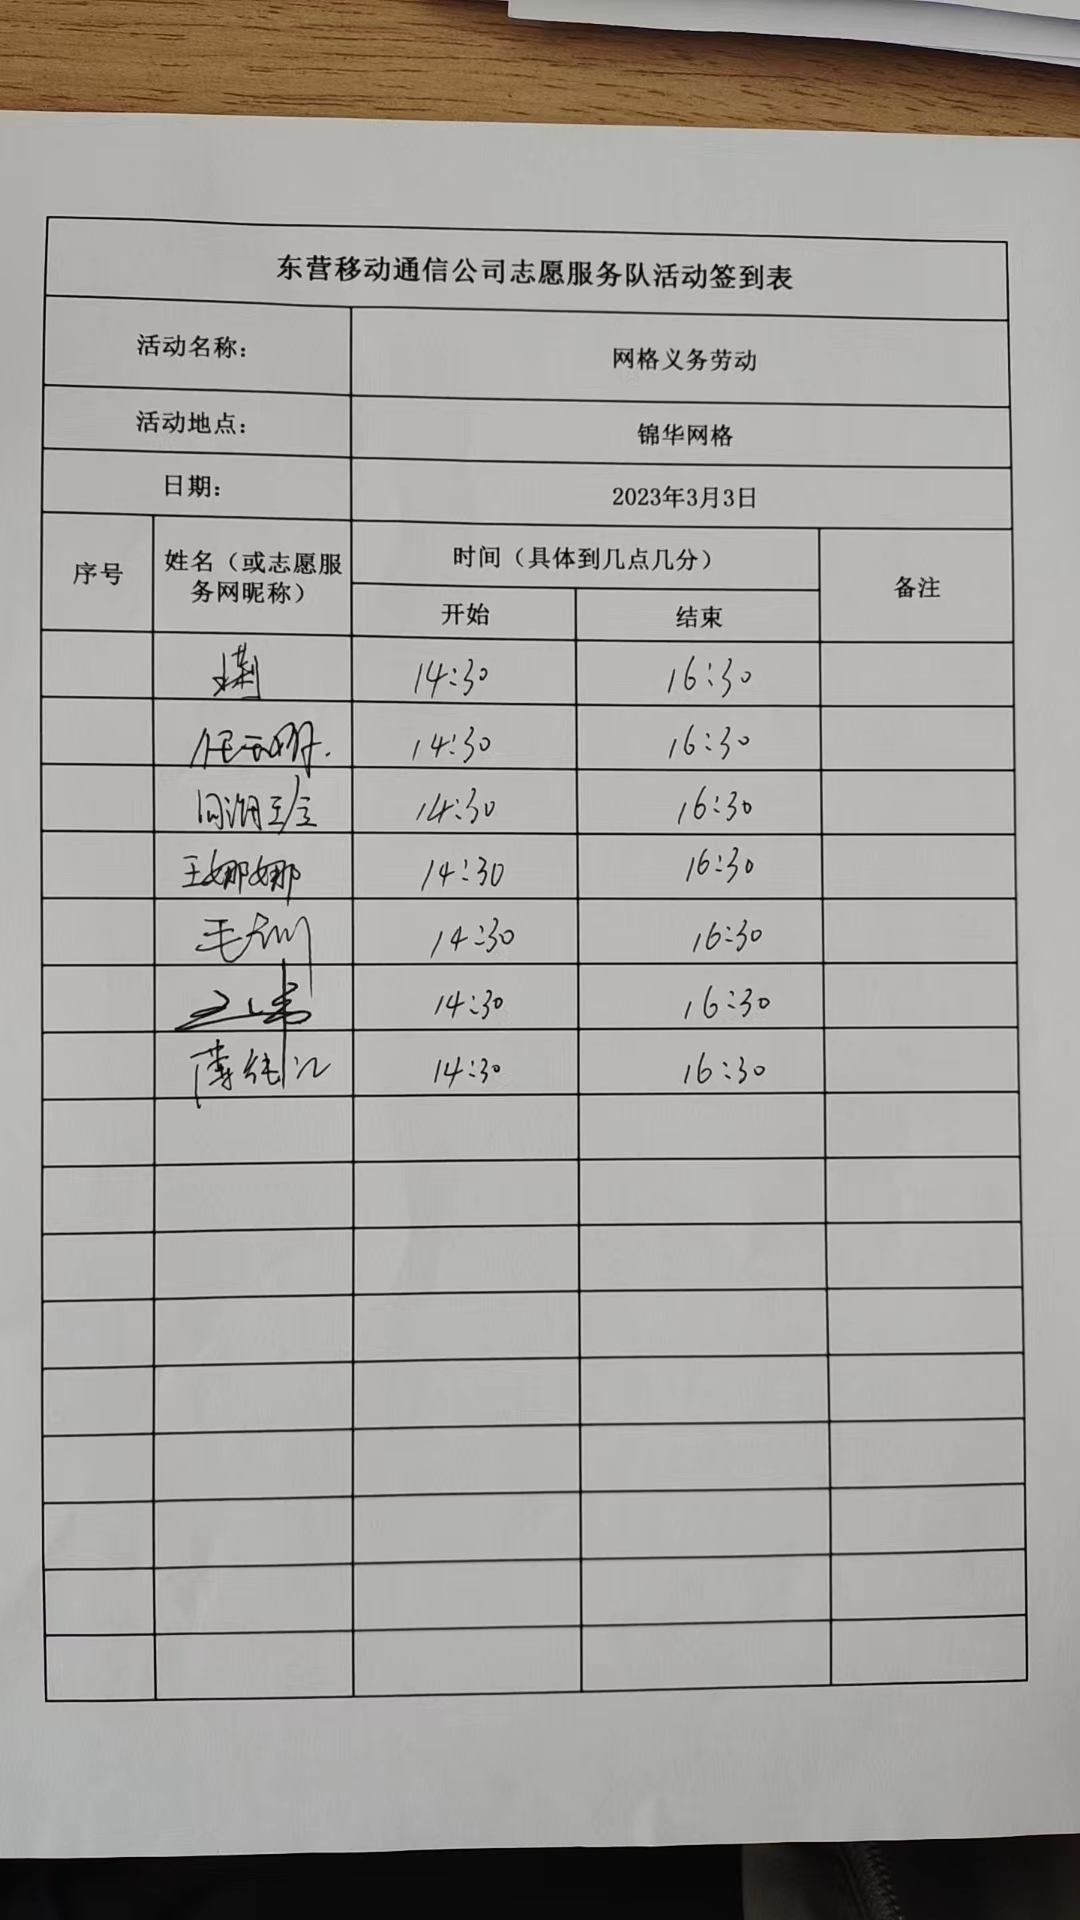 东营移动通信公司志愿服务队活动签到表
活动名称： 网格义务劳动
活动地点： 锦华网格
日期： 2023年3月3日
序号 姓名（或志愿服务网昵称） 时间（具体到几点几分） 备注
开始 结束
14:30 16:30
14:30 16:30
14:30 16:30
王娜娜 14:30 16:30
14:30 16:30
14:30 16:30
14:30 16:30